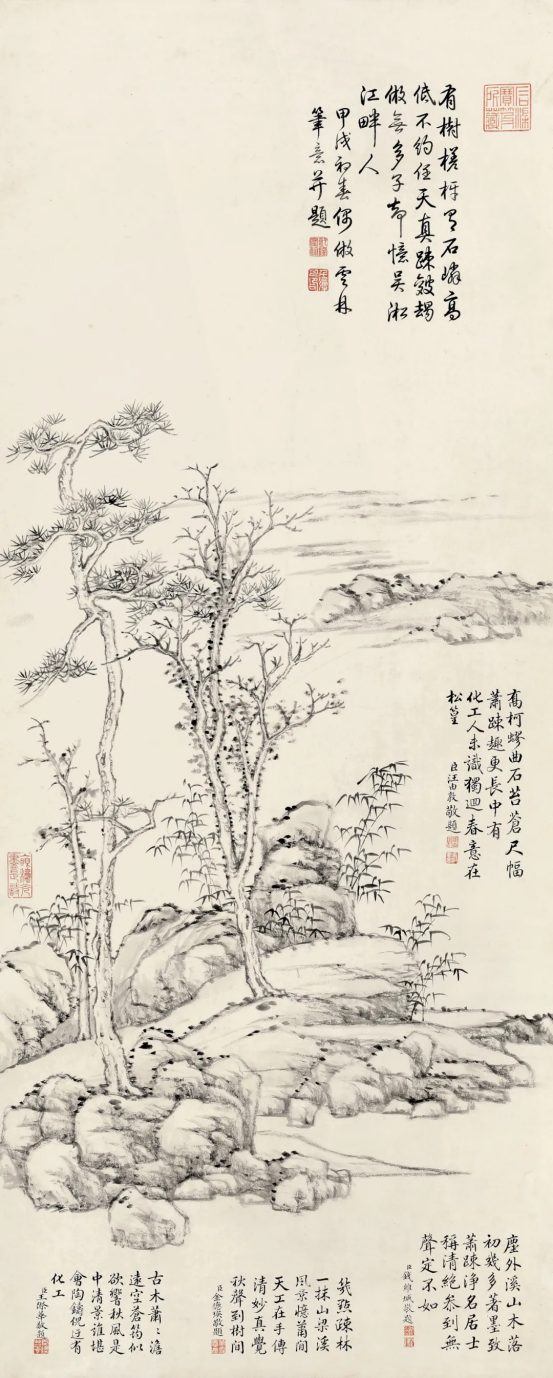 石渠寶笈所藏
有樹槎枒石嶙高
低不約任天真踈皴
無多子却憶吴淞
江畔人
甲戌初春偶倣雲林
筆意并題
高柯蟉曲石苔蒼尺幅
蕭踈趣更長中有
化工人未識獨迴春意在
松篁
臣汪由敦敬題
塵外溪山木落
初幾多著墨致
蕭踈淨名居士
稱清絕叅到無
聲定不如
臣錢維城敬題
幾點疎林
一抹山梁溪
風景憶蕭閒
天工在手傳
清妙真覺
秋聲到樹間
臣金德瑛敬題
古木蕭〻澹
遠空蒼筠似
欲響秋風是
中清景誰堪
會陶鑄倪迂有
化工
臣王際華敬題